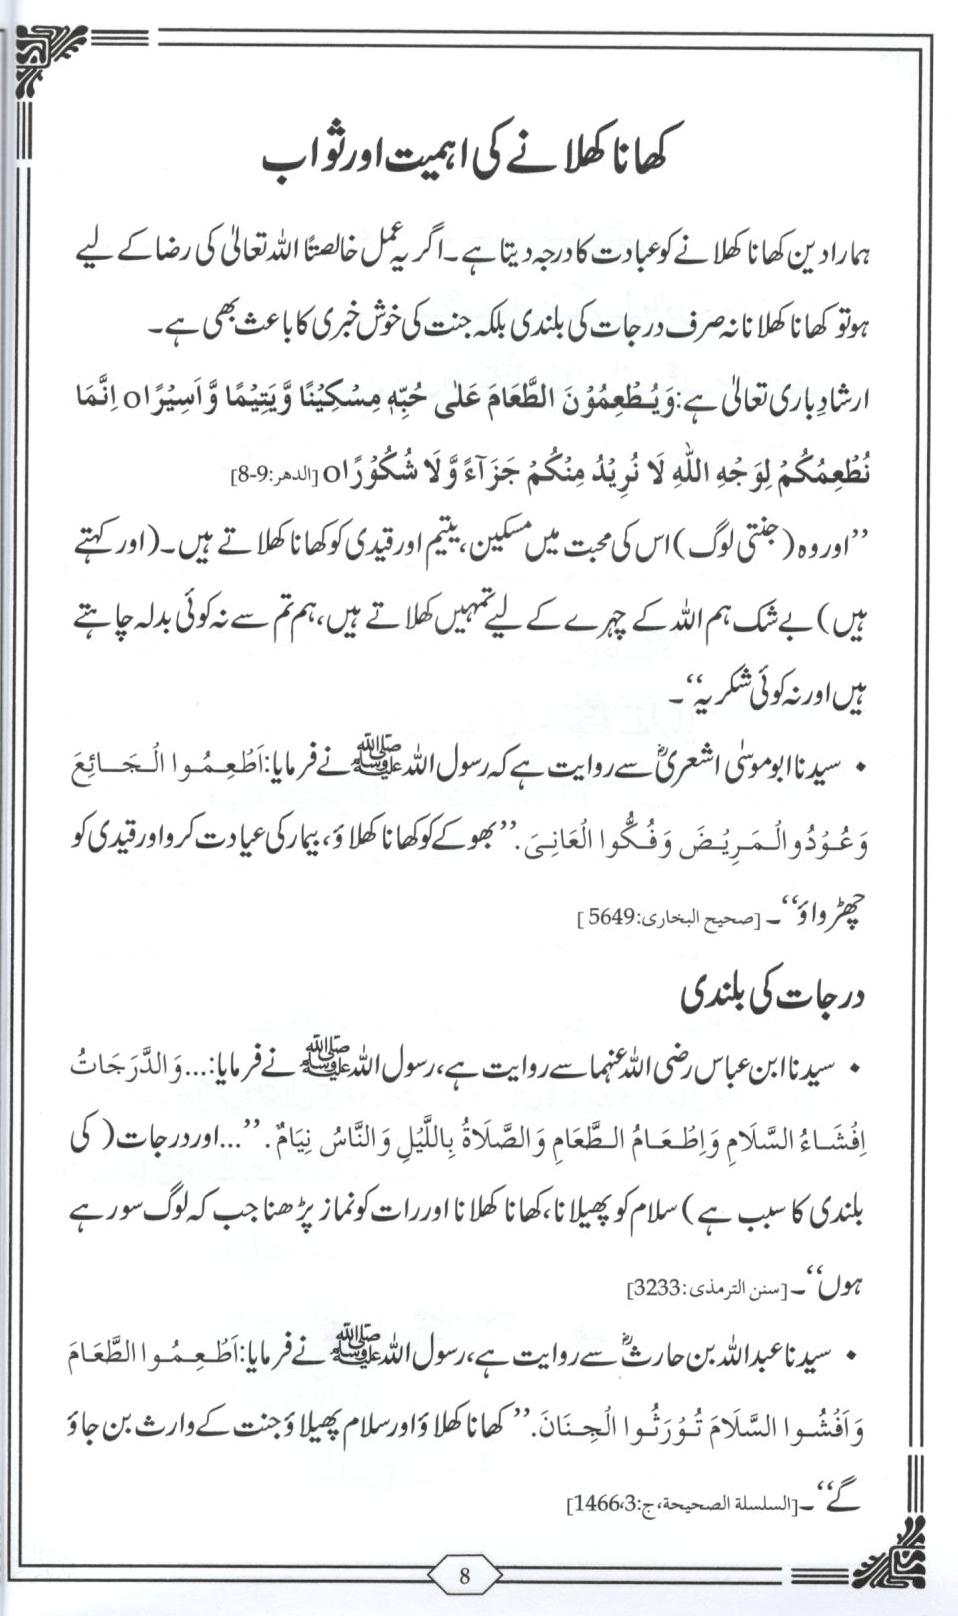 کھانا کھلانے کی اہمیت اور ثواب
ہمارا دین کھانا کھلانے کو عبادت کا درجہ دیتا ہے۔ اگر یہ عمل خالصتًا اللہ تعالیٰ کی رضا کے لیے
ہو تو کھانا کھلانا نہ صرف درجات کی بلندی بلکہ جنت کی خوش خبری کا باعث بھی ہے۔
ارشادِ باری تعالیٰ ہے: وَيُطْعِمُوْنَ الطَّعَامَ عَلٰى حُبِّهٖ مِسْكِيْنًا وَّيَتِيْمًا وَّاَسِيْرًاo اِنَّمَا
نُطْعِمُكُمْ لِوَجْهِ اللّٰهِ لَا نُرِيْدُ مِنْكُمْ جَزَآءً وَّلَا شُكُوْرًاo [الدهر:9-8]
’’اور وہ (جنتی لوگ) اس کی محبت میں مسکین، یتیم اور قیدی کو کھانا کھلاتے ہیں۔ (اور کہتے
ہیں) بے شک ہم اللہ کے چہرے کے لیے تمہیں کھلاتے ہیں، ہم تم سے نہ کوئی بدلہ چاہتے
ہیں اور نہ کوئی شکریہ‘‘۔
• سیدنا ابو موسیٰ اشعریؓ سے روایت ہے کہ رسول اللہ ﷺ نے فرمایا: اَطْعِمُوا الْجَائِعَ
وَعُوْدُوالْمَرِيْضَ وَفُكُّوا الْعَانِىَ. ’’بھوکے کو کھانا کھلاؤ، بیمار کی عیادت کرو اور قیدی کو
چھڑواؤ‘‘۔ [صحيح البخارى:5649]
درجات کی بلندی
• سیدنا ابن عباس رضی اللہ عنہما سے روایت ہے، رسول اللہ ﷺ نے فرمایا: ...وَالدَّرَجَاتُ
اِفْشَاءُ السَّلَامِ وَاِطْعَامُ الطَّعَامِ وَالصَّلَاةُ بِاللَّيْلِ وَالنَّاسُ نِيَامٌ. ’’...اور درجات (کی
بلندی کا سبب ہے) سلام کو پھیلانا، کھانا کھلانا اور رات کو نماز پڑھنا جب کہ لوگ سو رہے
ہوں‘‘۔ [سنن الترمذى:3233]
• سیدنا عبداللہ بن حارثؓ سے روایت ہے، رسول اللہ ﷺ نے فرمایا: اَطْعِمُوا الطَّعَامَ
وَاَفْشُوا السَّلَامَ تُوْرَثُوا الْجِنَانَ. ’’کھانا کھلاؤ اور سلام پھیلاؤ جنت کے وارث بن جاؤ
گے‘‘۔ [السلسلة الصحيحة، ج:3،1466]
8